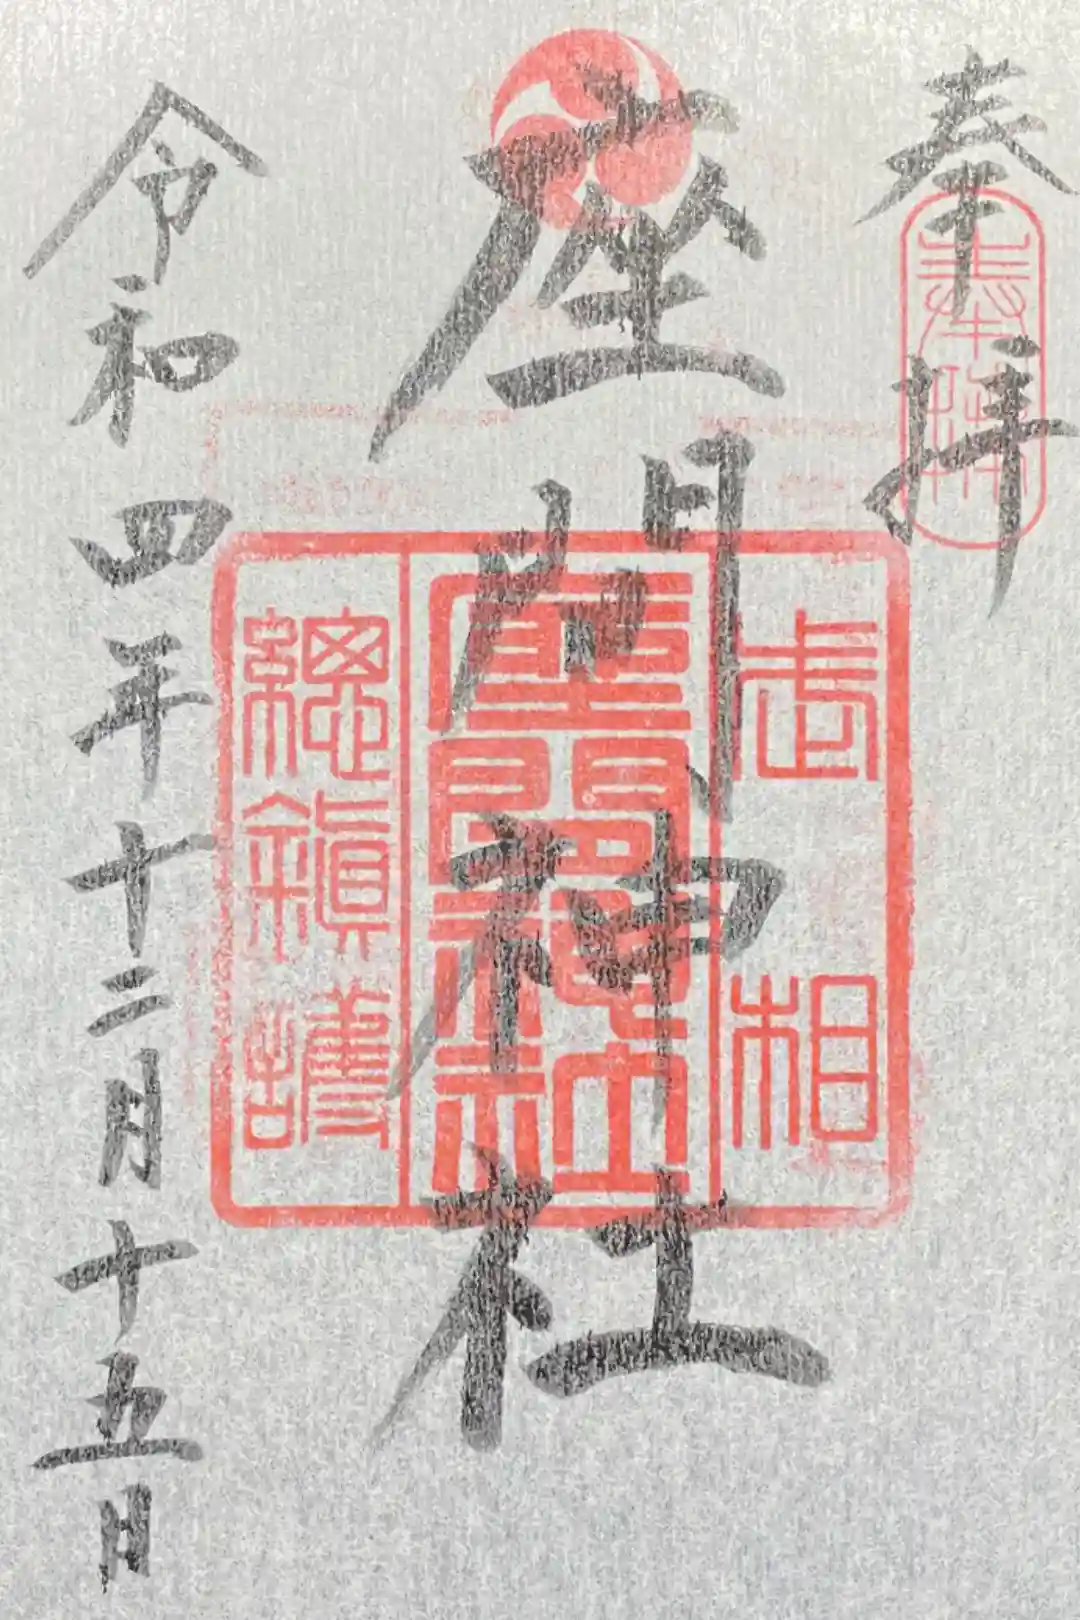 奉拝
奉拝
武相
座間神社
座間神社
総鎮護
令和四年十二月十五日